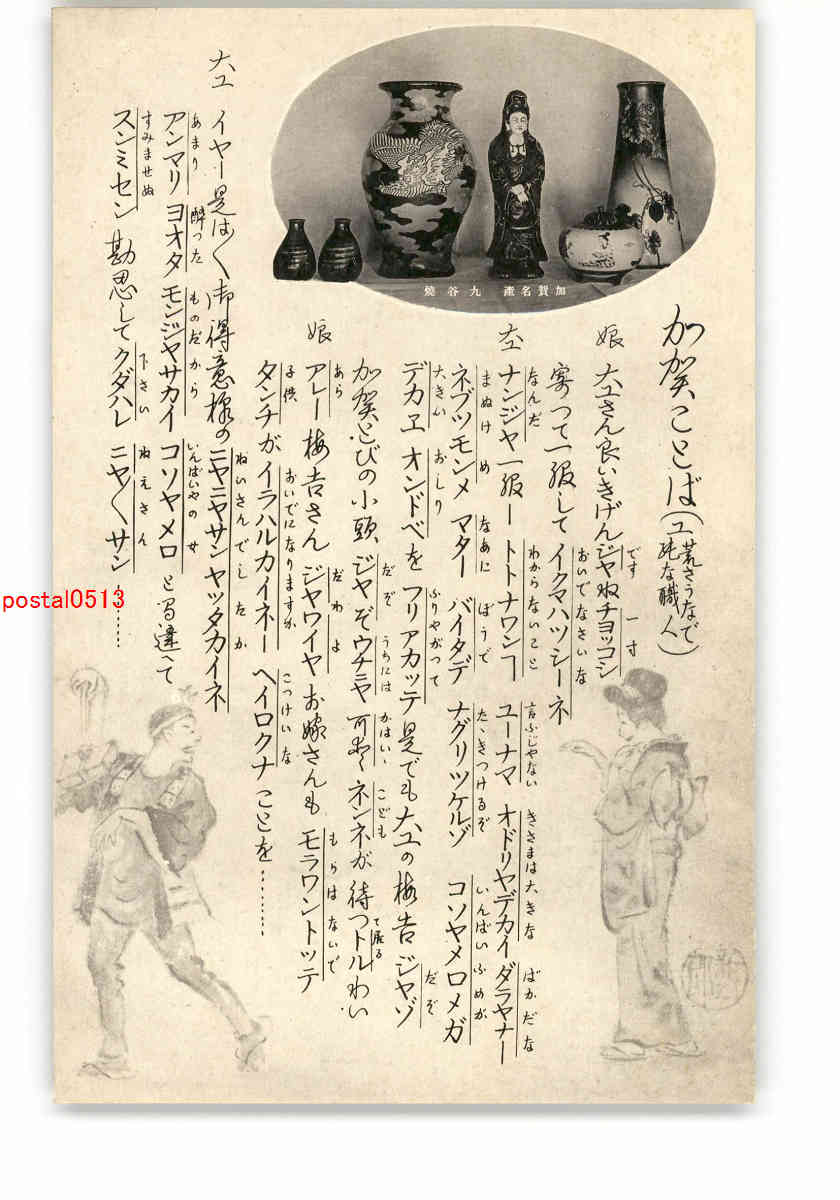 加賀名産 九谷焼
加賀ことば(荒さうなで
工純な職人)
娘 大工さん良いきげんジャねチョッコシ
です 一寸
寄つて一服してイクマハッシーネ
おいでなさいな
大工 ナンジャ一服ートトナワンコー ユーナマ オドリャデカイ ダラヤナー
なんだ わからないこと 言ふじやない きさまは大きな ばかだな
ネブツモンメ マター バイタデ ナグリツケルゾ コソヤメロメガ
まぬけめ なあに ぼうで たゝきつけるぞ いんばいふめが
デカヱ オンドベを フリアカッテ 是でも大工の梅吉ジャゾ
大きい おしり ふりやがつて だぞ
加賀とびの小頭 ジャぞ ウチニャ 可愛〱 ネンネが 待つトルわい
だぞ うちには かはいゝ こども て居る
娘 アレー梅吉さん ジャワイヤ お嫁さんも モラワントッテ
あら だわよ もらはないで
タンチが イラハルカイネー ヘイロクナ ことを………
子供 おいでになりますか こつけいな
大工 イヤー是は〱御得意様の ニヤニヤサンヤッタカイネ
ねいさんでしたか
アンマリ ヨオタ モンジャサカイ コソヤメロ と間違へて
あまり 酔つた ものだから いんばいやのせ
スンミセン 勘忍して クダハレ ニヤ〱サン……
すみませぬ 下さい ねえさん
postal0513